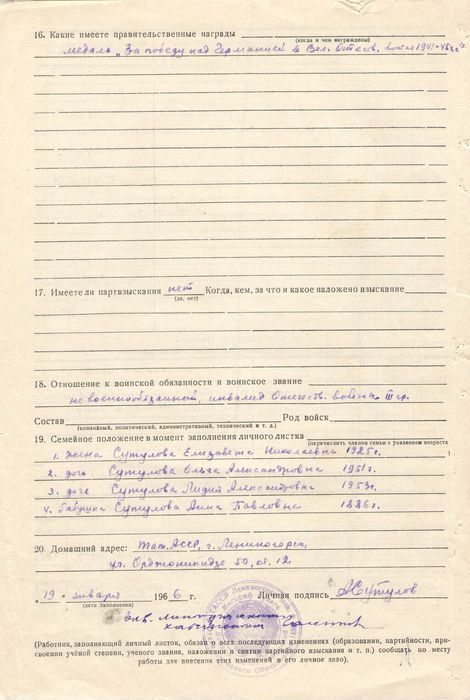 16. Какие имеете правительственные награды
(когда и чем награждены)
медаль „За победу над Германией в Вел. Отеч. войне 1941-45 гг"
17. Имеете ли партвзыскания нет Когда, кем, за что и какое наложено взыскание
(да, нет)
18. Отношение к воинской обязанности и воинское звание
невоеннообязанный, инвалид Отечеств. войны III гр.
Состав Род войск
(командный, политический, административный, технический и т. д.)
19. Семейное положение в момент заполнения личного листка
(перечислить членов семьи с указанием возраста)
1. жена Сутулова Елизавета Николаевна 1925 г.
2. дочь Сутулова Ольга Александровна 1951 г.
3. дочь Сутулова Лидия Александровна 1953 г.
4. бабушка Сутулова Анна Павловна 1886 г.
20. Домашний адрес: Тат. АССР, г. Лениногорск,
ул. Орджоникидзе 50, кв. 12
„19" января 1966 г. Личная подпись АСутулов
(дата заполнения)
(Работник, заполняющий личный листок, обязан о всех последующих изменениях (образовании, партийности, при-
своении учёной степени, ученого звания, наложении и снятии партийного взыскания и т. п.) сообщать по месту
работы для внесения этих изменений в его личное дело).